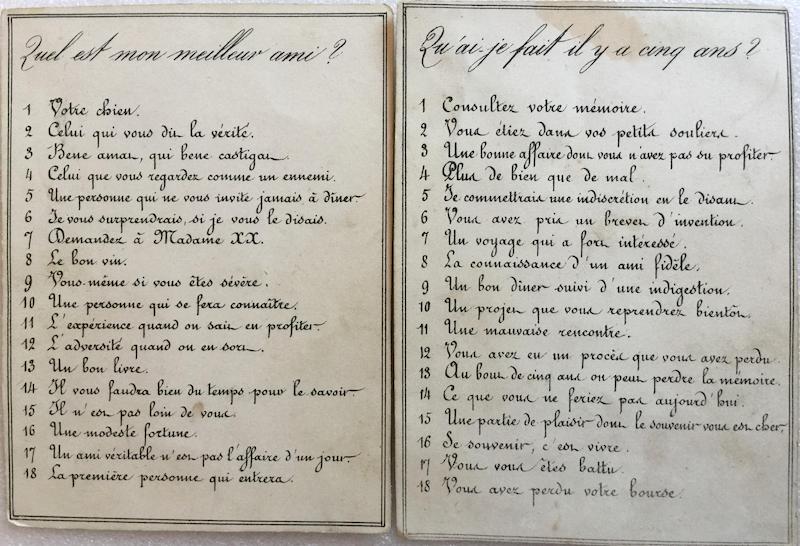 Quel est mon meilleur ami ?
1 Votre chien.
2 Celui qui vous dit la vérité.
3 Bene amat, qui bene castigat.
4 Celui que vous regardez comme un ennemi.
5 Une personne qui ne vous invite jamais à dîner
6 Je vous surprendrais, si je vous le disais.
7 Demandez à Madame XX.
8 Le bon vin.
9 Vous-même si vous êtes sévère.
10 Une personne qui se fera connaître.
11 L'expérience quand on sait en profiter.
12 L'adversité quand on en sort.
13 Un bon livre.
14 Il vous faudra bien du temps pour le savoir.
15 Il n'est pas loin de vous.
16 Une modeste fortune.
17 Un ami véritable n'est pas l'affaire d'un jour.
18 La première personne qui entrera.
Qu'ai-je fait il y a cinq ans ?
1 Consultez votre mémoire.
2 Vous étiez dans vos petits souliers.
3 Une bonne affaire dont vous n'avez pas su profiter.
4 Plus de bien que de mal.
5 Je commettrais une indiscrétion en le disant.
6 Vous avez pris un brevet d'invention.
7 Un voyage qui a fort intéressé.
8 La connaissance d'un ami fidèle.
9 Un bon dîner suivi d'une indigestion.
10 Un projet que vous reprendrez bientôt.
11 Une mauvaise rencontre.
12 Vous avez eu un procès que vous avez perdu.
13 Au bout de cinq ans on peut perdre la mémoire.
14 Ce que vous ne feriez pas aujourd'hui.
15 Une partie de plaisir dont le souvenir vous est cher.
16 Se souvenir, c'est vivre.
17 Vous vous êtes battu.
18 Vous avez perdu votre bourse.